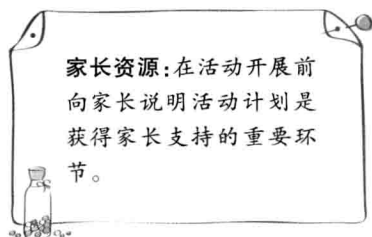 家长资源:在活动开展前
向家长说明活动计划是
获得家长支持的重要环
节。